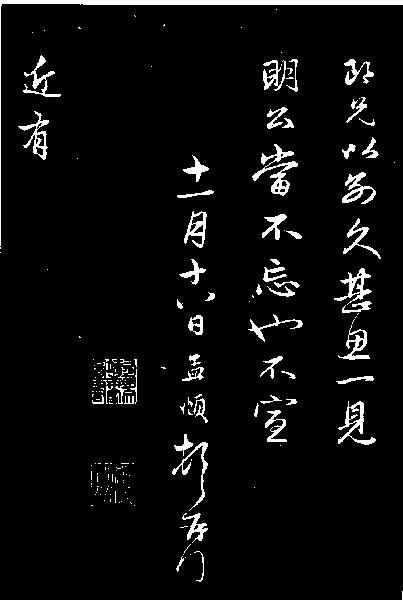 即兄以别久甚思一見
明公當不忘也不宣
十一月十八日孟頫頓首
近有